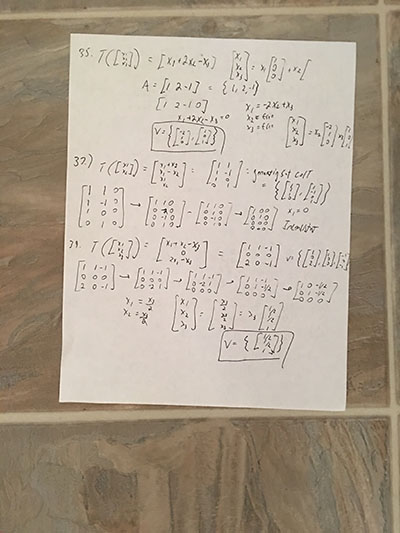 35. T([x1 x2 x3]) = [x1+2x2-x3] [x1 x2 x3] = x1 [1 0 0] + x2 [
A = [1 2 -1] = {1, 2, -1}
[1 2 -1 0] x1 = -2x2 + x3
x1+2x2-x3=0 x2 = free
x3 = free
V = {[-2 1 0], [1 0 1]} [x1 x2 x3] = x2 [-2 1 0] x3 [1 0
37) T([x1 x2]) = [x1+x2 x1-x2 x1 x2] = [1 1 1 -1 1 0 0 1] = generating set
= {[1 1 1 0], [1 -1 0 1]}
[1 1 0 1 -1 0 1 0 0 0 1 0] → [1 1 0 0 -2 0 0 -1 0 0 1 0] → [1 1 0 0 1 0 0 -1 0 0 0 0] → [1 0 0 0 1 0 0 0 0 0 0 0] x1 = 0
39. T([x1 x2 x3]) = [x1+x2-x3 0 2x1-x3] = [1 1 -1 0 0 0 2 0 -1] V = {[1 0 2], [1 0 0], [-1 0 -1]
[1 1 -1 0 0 0 2 0 -1] → [1 1 -1 0 0 0 0 -2 1] → [1 1 -1 0 -2 1 0 0 0] → [1 1 -1 0 1 -1/2 0 0 0] → [1 0 -1/2 0 1 -1/2 0 0 0]
x1 = x3/2 [x1 x2 x3] = [x3/2 x3/2 x3] = x3 [1/2 1/2 1]
x2 = x3/2
V = {[1/2 1/2 1]}